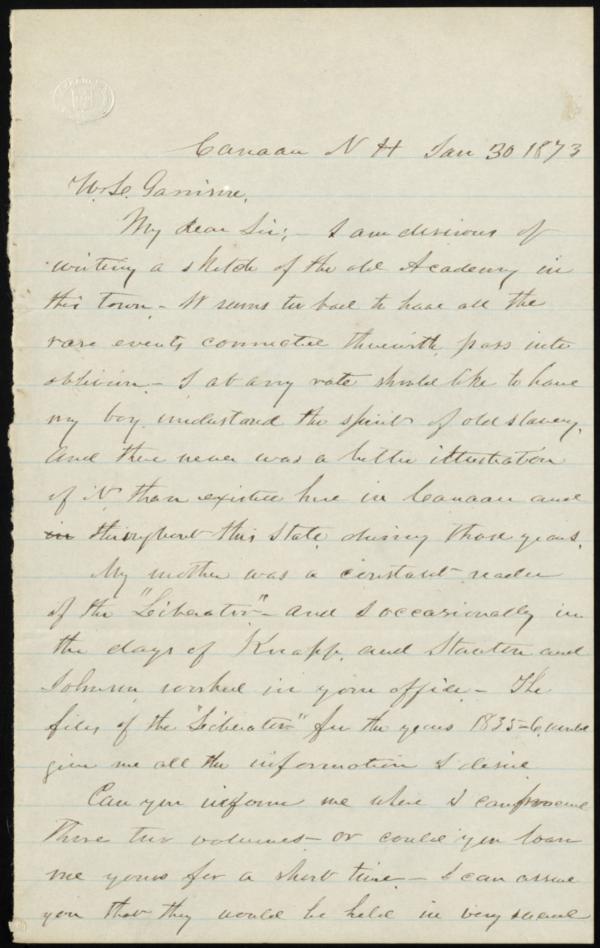 Canaan N H Jan 30 1873
W. L. Garrison,
My dear Sir; - I am desirous of
writing a sketch of the old Academy in
this town - It seems too bad to have all the
rare events connected therewith pass into
oblivion - I at any rate should like to have
my boy understand the spirit of old slavery,
and there never was a better illustration
of it than existed here in Canaan and
in throughout this State during those years.
My mother was a constant reader
of the "Liberator" - and I occasionally in
the days of Knapp, and Stanton and
Johnson worked in your office - The
files of the "Liberator" for the years 1835-6 would
give me all the information I desire
Can you inform me where I can procure
those two volumes - or could you loan
me yours for a short time - I can assure
you that they would be held in very sacred